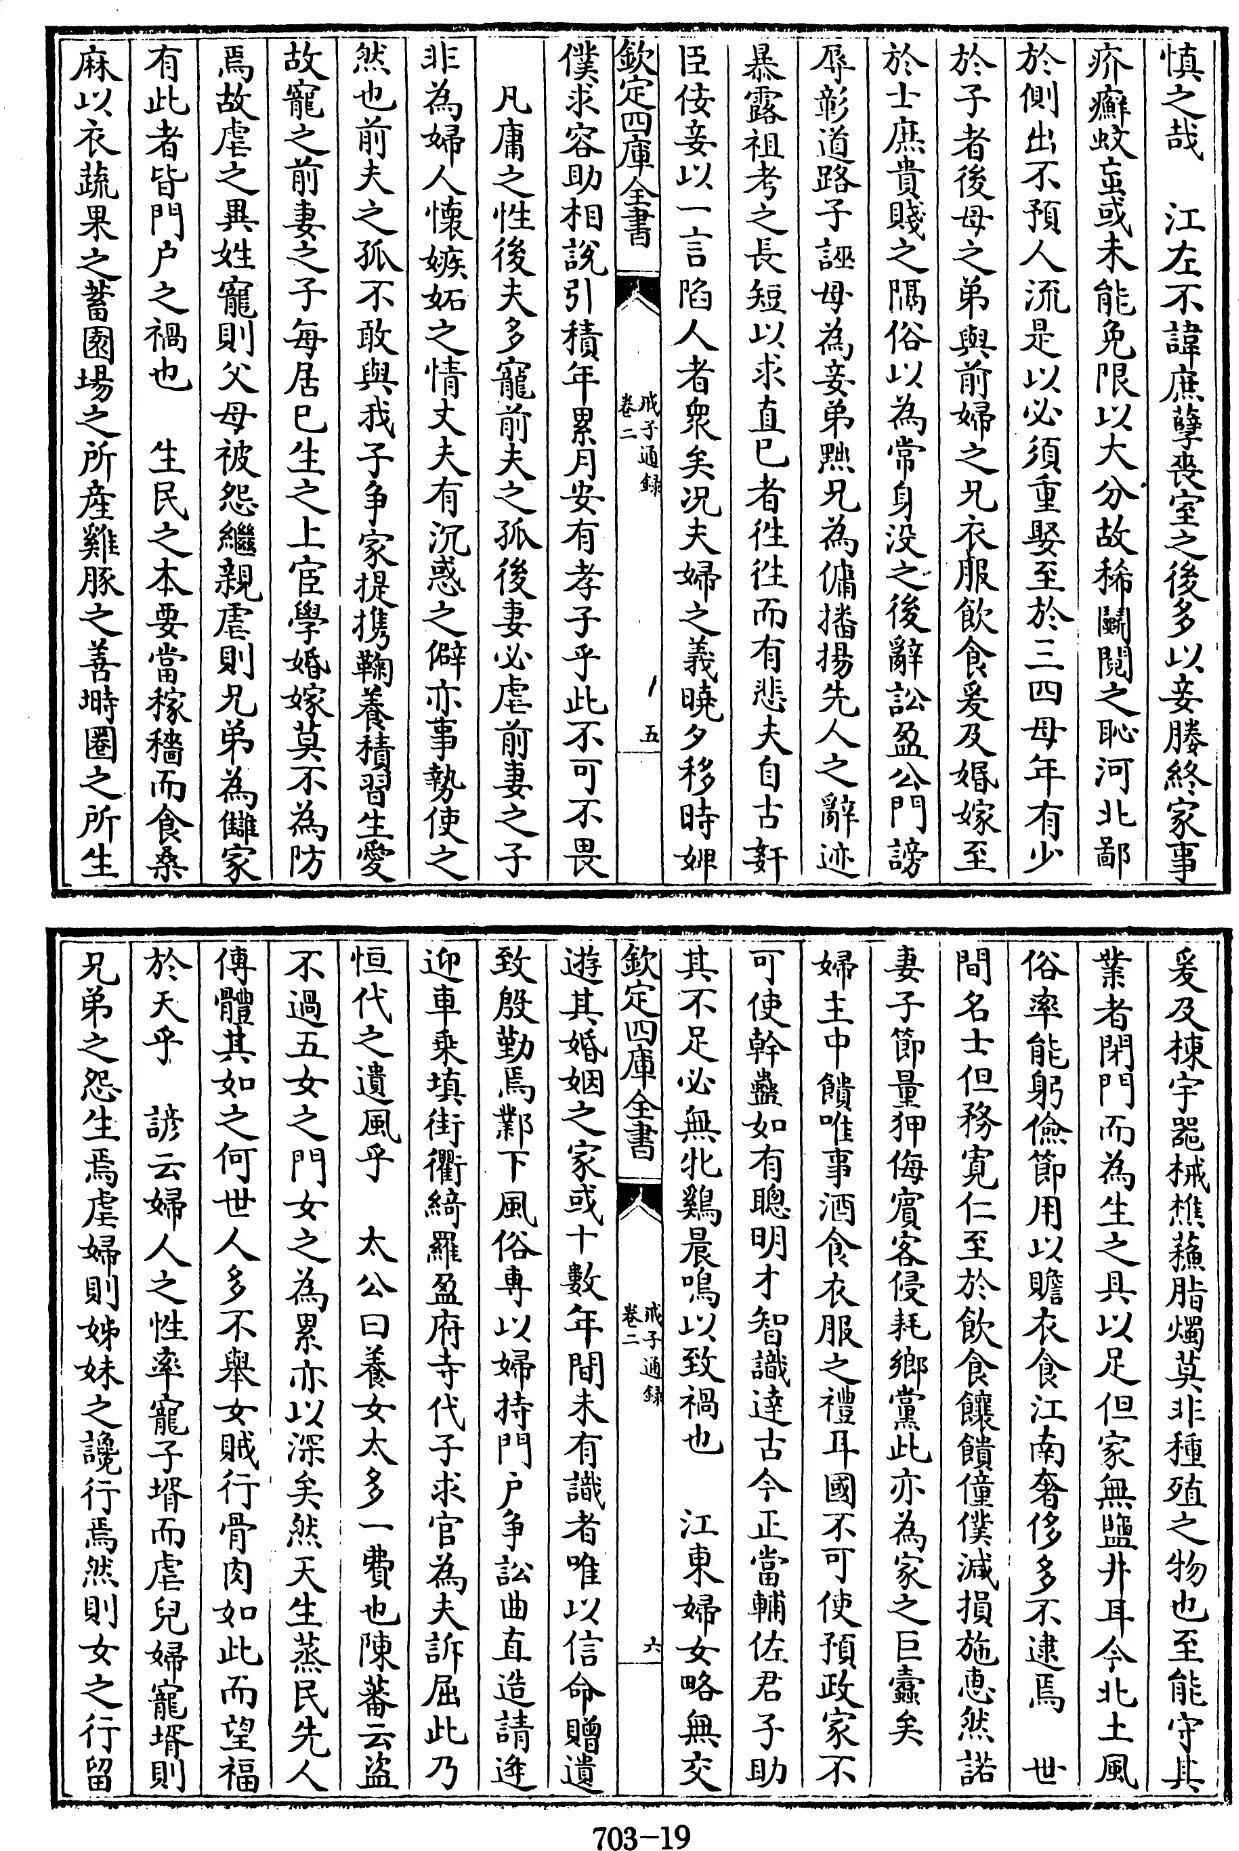 慎之哉　江左不諱庶孽喪室之後多以妾媵終家事
疥癬蚊䖟或未能免限以大分故稀鬭䦧之恥河北鄙
於側出不預人流是以必須重娶至於三四母年有少
於子者後母之弟與前婦之兄衣服飲食爰及婚嫁至
於士庶貴賤之隔俗以為常身没之後辭訟盈公門謗
辱彰道路子誣母為妾弟黜兄為傭播揚先人之辭迹
暴露祖考之長短以求直已者徃徃而有悲夫自古姧
臣佞妾以一言陷人者衆矣况夫婦之義曉夕移時婢
僕求容助相説引積年累月安有孝子乎此不可不畏
凡庸之性後夫多寵前夫之孤後妻必虐前妻之子
非為婦人懷嫉妬之情丈夫有沉惑之僻亦事勢使之
然也前夫之孤不敢與我子争家提携鞠養積習生愛
故寵之前妻之子每居已生之上宦學婚嫁莫不為防
焉故虐之異姓寵則父母被怨繼親虐則兄弟為讎家
有此者皆門户之禍也　生民之本要當稼穡而食桑
麻以衣蔬果之蓄園場之所産雞豚之善塒圈之所生
欽定四庫全書
戒子通録
卷二
五
爰及棟宇器械樵蘇脂燭莫非種殖之物也至能守其
業者閉門而為生之具以足但家無鹽井耳今北土風
俗率能躬儉節用以贍衣食江南奢侈多不逮焉　世
間名士但務寛仁至於飲食饟饋僮僕減損施惠然諾
妻子節量狎侮賓客侵耗鄉黨此亦為家之巨蠹矣
婦主中饋唯事酒食衣服之禮耳國不可使預政家不
可使幹蠱如有聰明才智識達古今正當輔佐君子助
其不足必無牝鷄晨鳴以致禍也　江東婦女略無交
遊其婚姻之家或十數年間未有識者唯以信命贈遺
致殷勤焉鄴下風俗專以婦持門户争訟曲直造請逄
迎車乗填街衢綺羅盈府寺代子求官為夫訴屈此乃
恒代之遺風乎　太公曰養女太多一費也陳蕃云盜
不過五女之門女之為累亦以深矣然天生蒸民先人
傳體其如之何世人多不舉女賊行骨肉如此而望福
於天乎　諺云婦人之性率寵子壻而虐兒婦寵壻則
兄弟之怨生焉虐婦則姊妹之讒行焉然則女之行留
欽定四庫全書
戒子通録
卷二
六
703-19